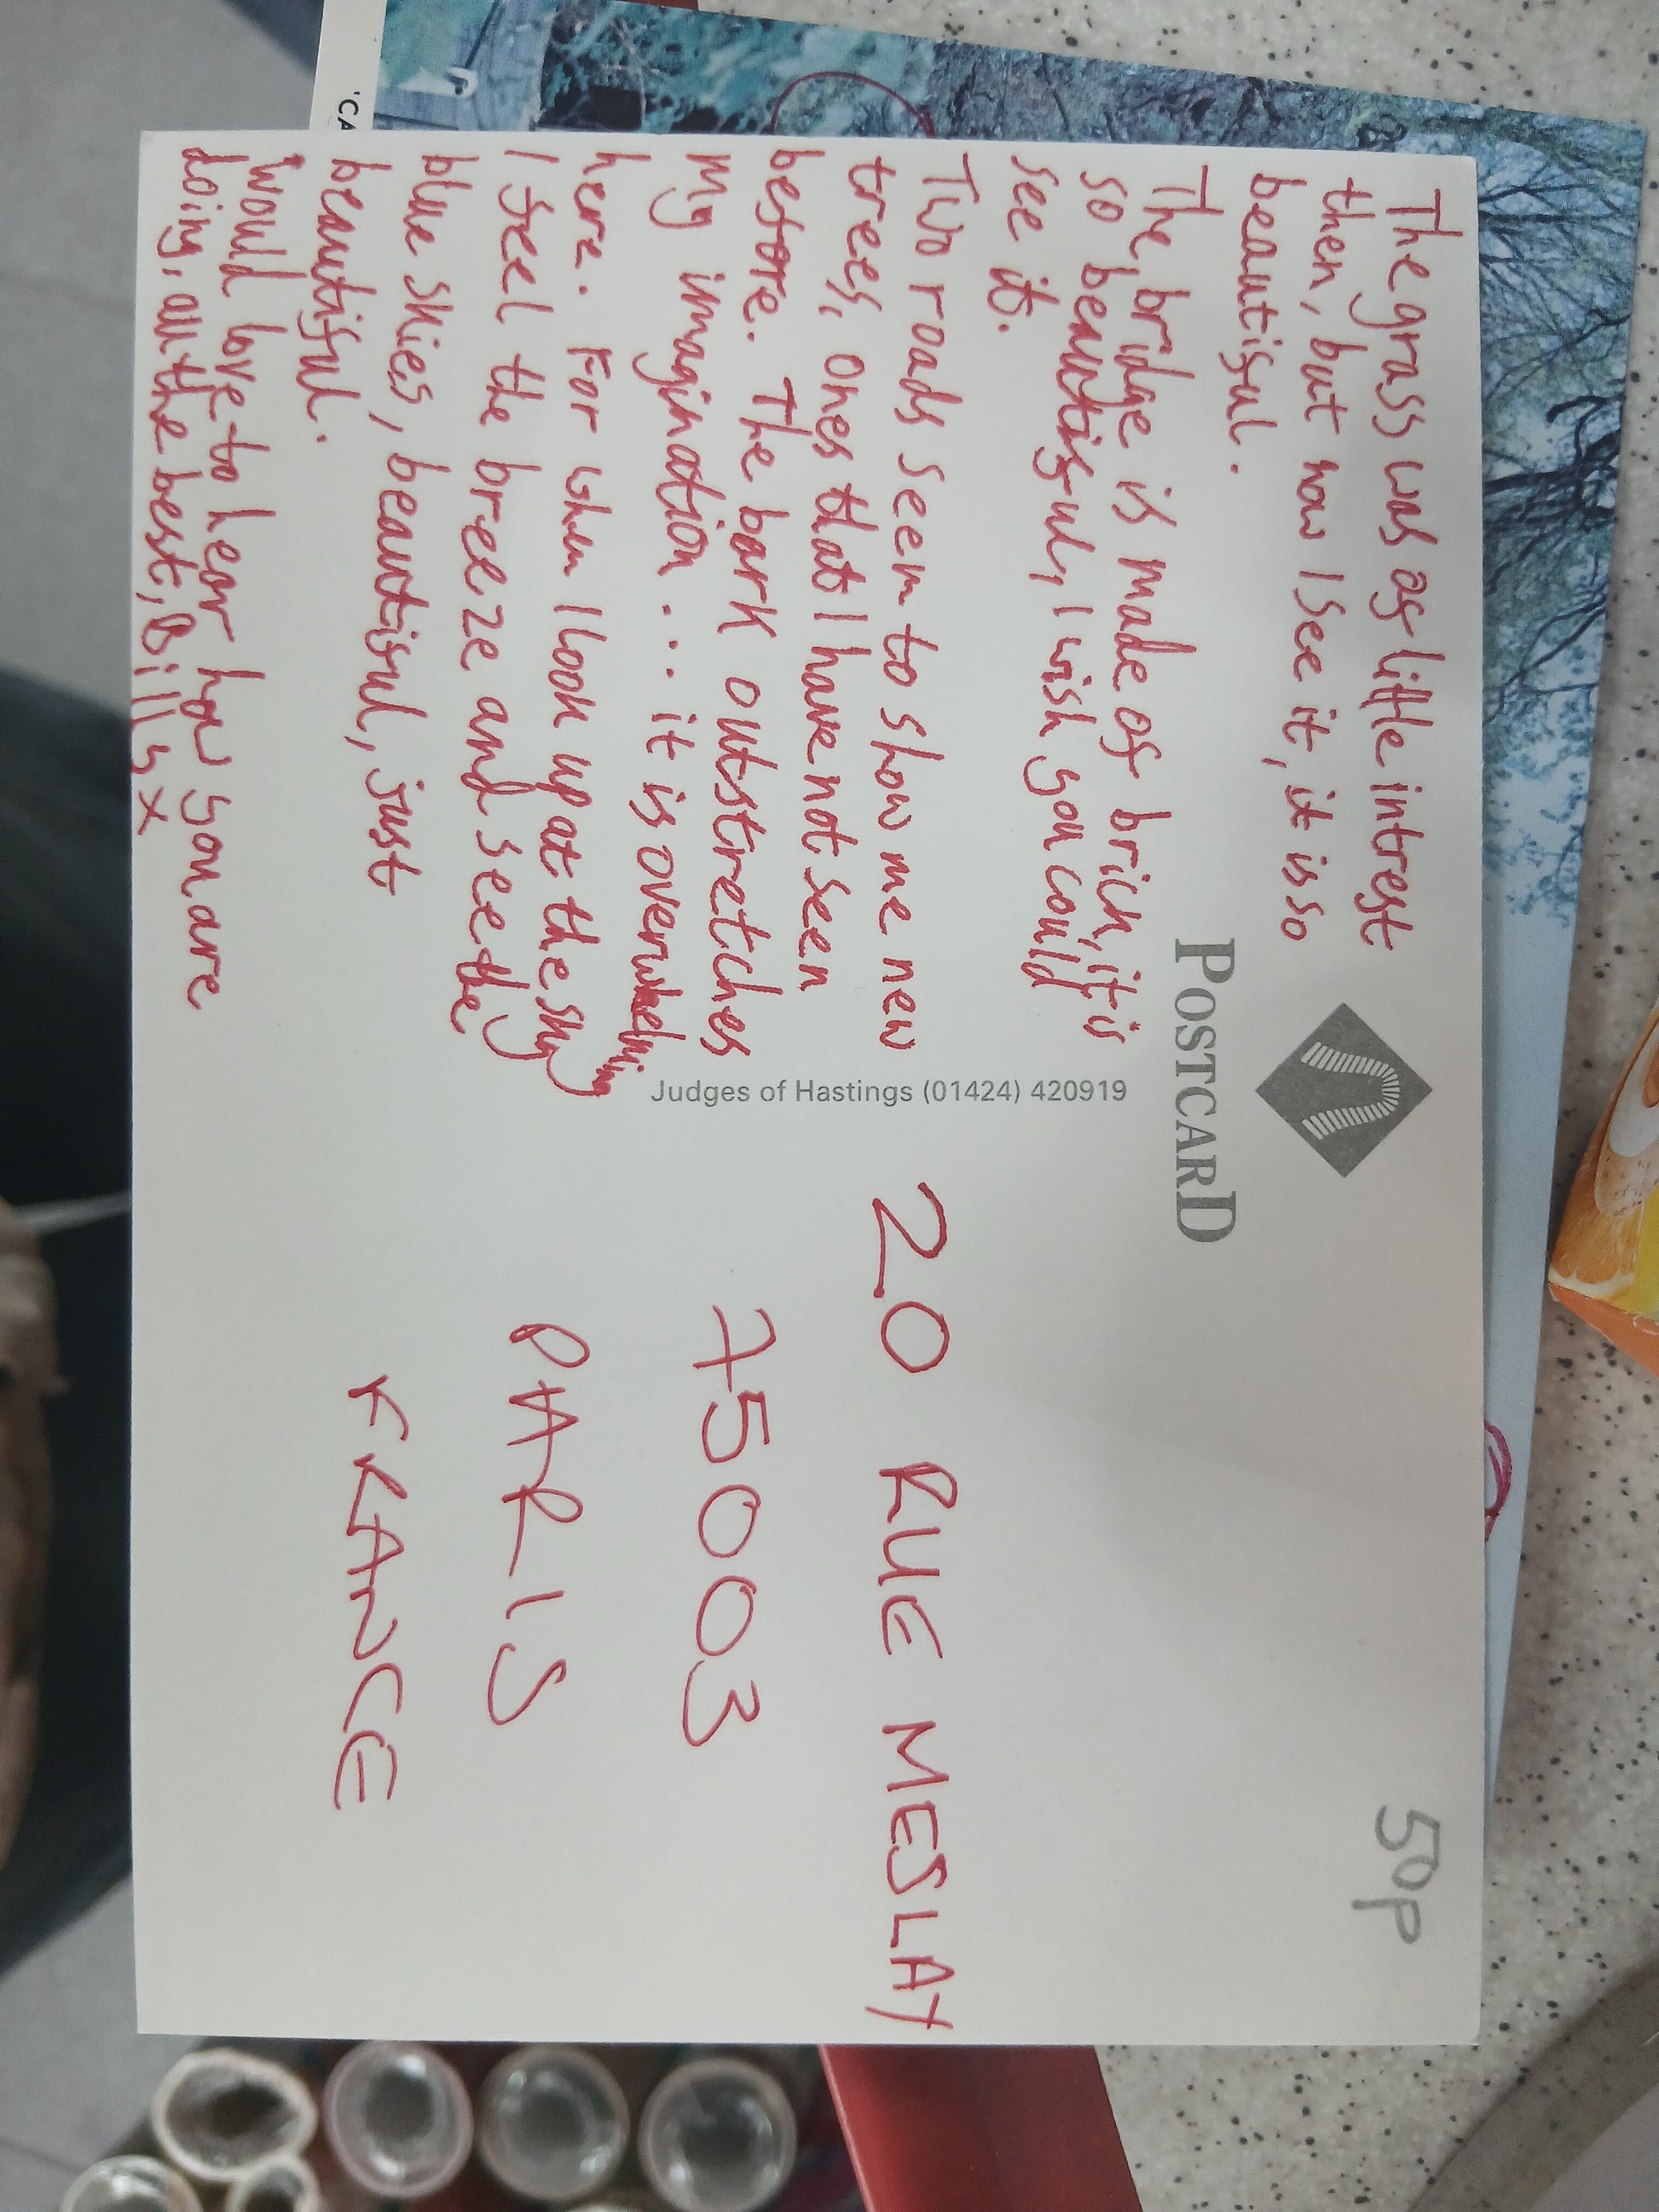 The grass was of little intrest
then, but now I see it, it is so
beautiful.
The bridge is made of brick, it is
so beautiful, I wish you could
see it.
Two roads seem to show me new
trees, ones that I have not seen
before. The bark outstretches
my imagination... it is overwhelming
here. For when I look up at the sky
I feel the breeze and see the
blue skies, beautiful, just
beautiful.
Would love to hear how you are
doing, all the best, Billy x
POSTCARD
Judges of Hastings (01424) 420919
50p
20 RUE MESLAY
75003
PARIS
FRANCE
'CA